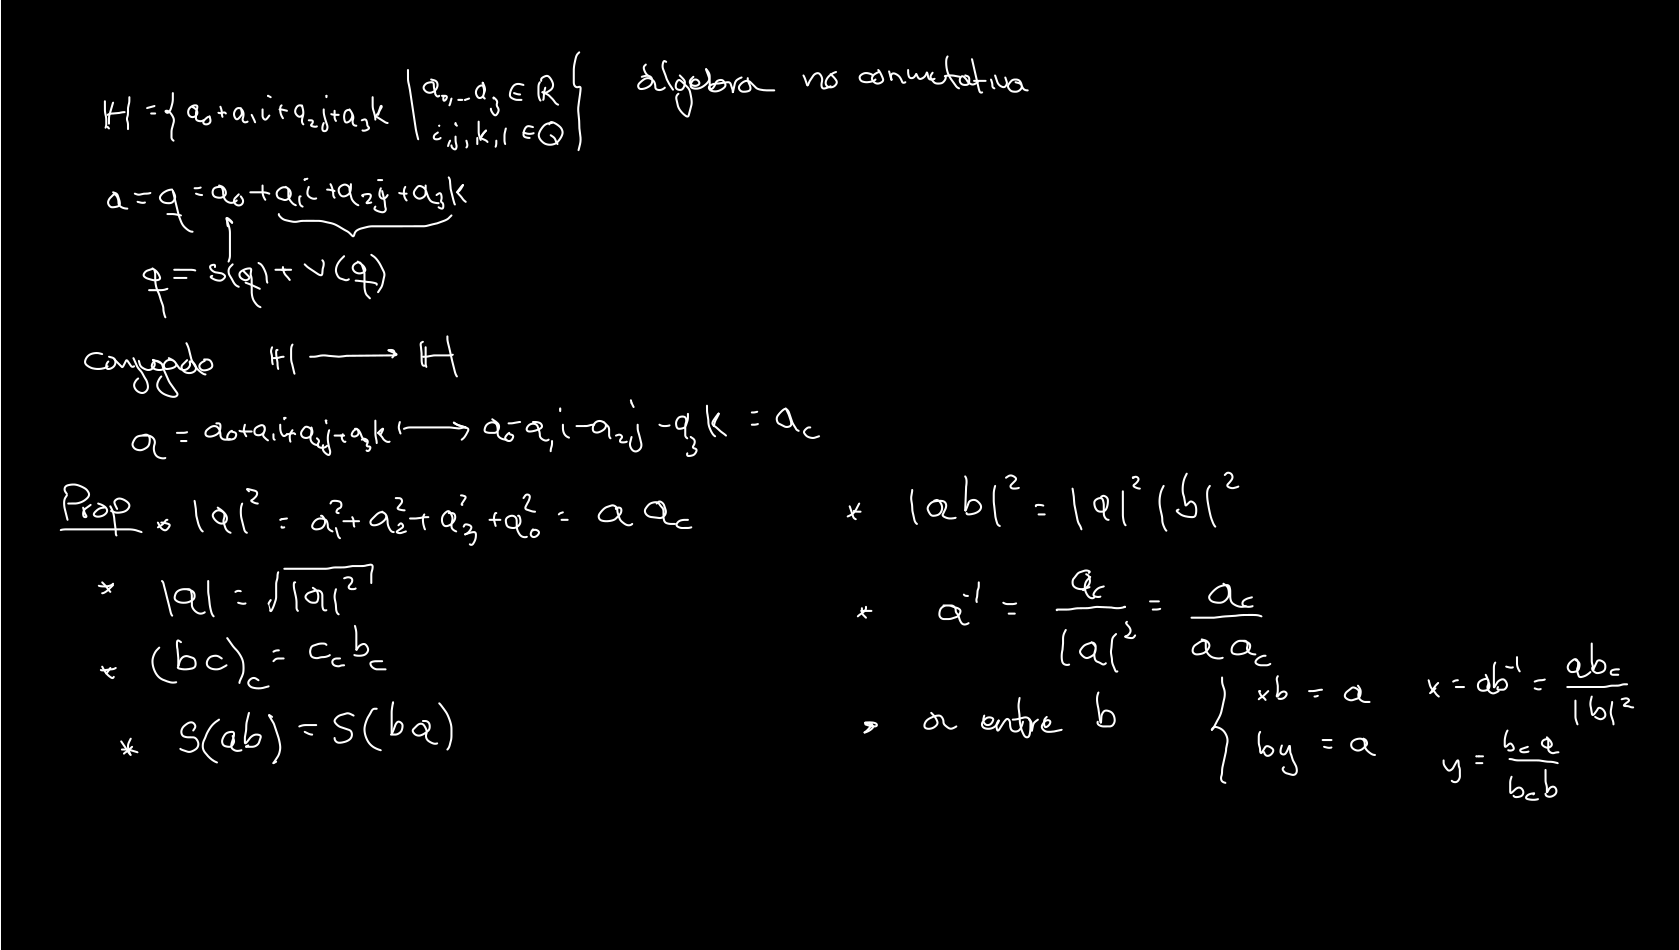 ℍ = { a₀+a₁i+a₂j+a₃k | a₀,...a₃ ∈ ℝ
i,j,k,1 ∈ Q } álgebra no conmutativa
a = q = a₀+a₁i+a₂j+a₃k
q = S(q) + V(q)
conjugado ℍ ⟶ ℍ
a = a₀+a₁i+a₂j+a₃k ⟼ a₀-a₁i-a₂j-a₃k = a_c
Prop * |a|² = a₁²+a₂²+a₃²+a₀² = a a_c
* |a| = √|a|²
* (bc)_c = c_c b_c
* S(ab) = S(ba)
* |ab|² = |a|² |b|²
* a⁻¹ = a_c / |a|² = a_c / a a_c
* a entre b { xb = a x = ab⁻¹ = ab_c / |b|²
by = a y = b_c a / b_c b